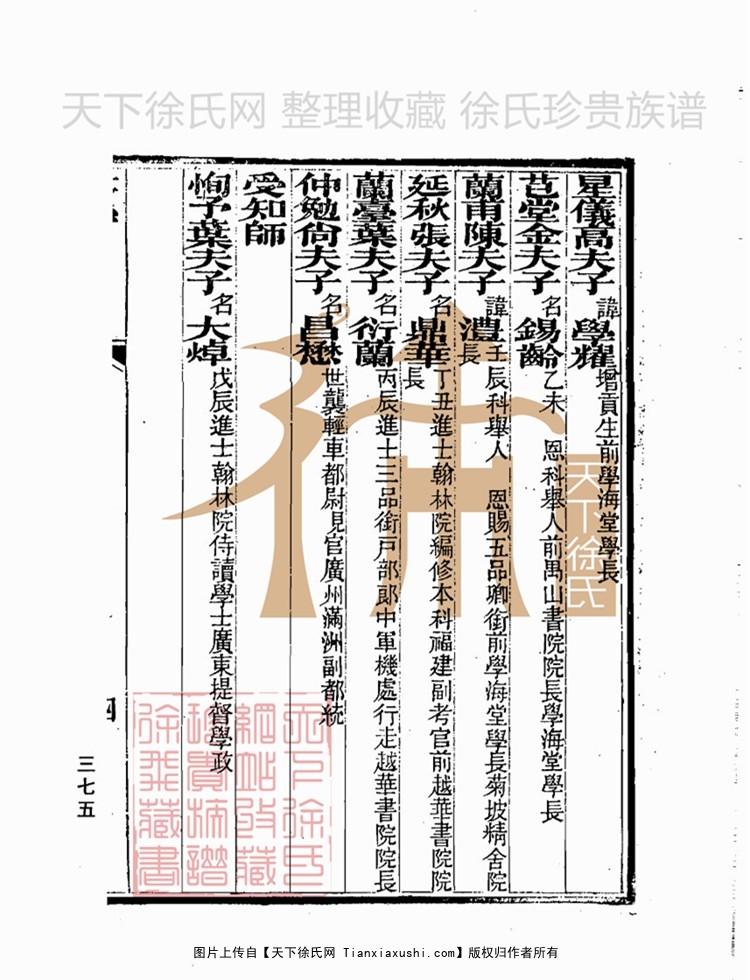 天下徐氏网 整理收藏 徐氏珍贵族谱
星儀高夫子 諱學耀 增貢生前學海堂學長
芑堂金夫子 名錫齡 乙未 恩科舉人前禺山書院院長學海堂學長
蘭甫陳夫子 諱澧 壬辰科舉人 恩賜五品卿銜前學海堂學長菊坡精舍院長
延秋張夫子 名鼎華 丁丑進士翰林院編修本科福建副考官前越華書院院長
蘭臺葉夫子 名衍蘭 丙辰進士三品銜戸部郎中軍機處行走越華書院院長
仲勉尙夫子 名昌懋 世襲輕車都尉見官廣州滿洲副都統
受知師
恂予葉夫子 名大焯 戊辰進士翰林院侍讀學士廣東提督學政
四
三七五
天下徐氏
天下徐氏網站收藏珍貴族譜徐氏藏書
图片上传自【天下徐氏网 Tianxiaxushi.com】版权归作者所有